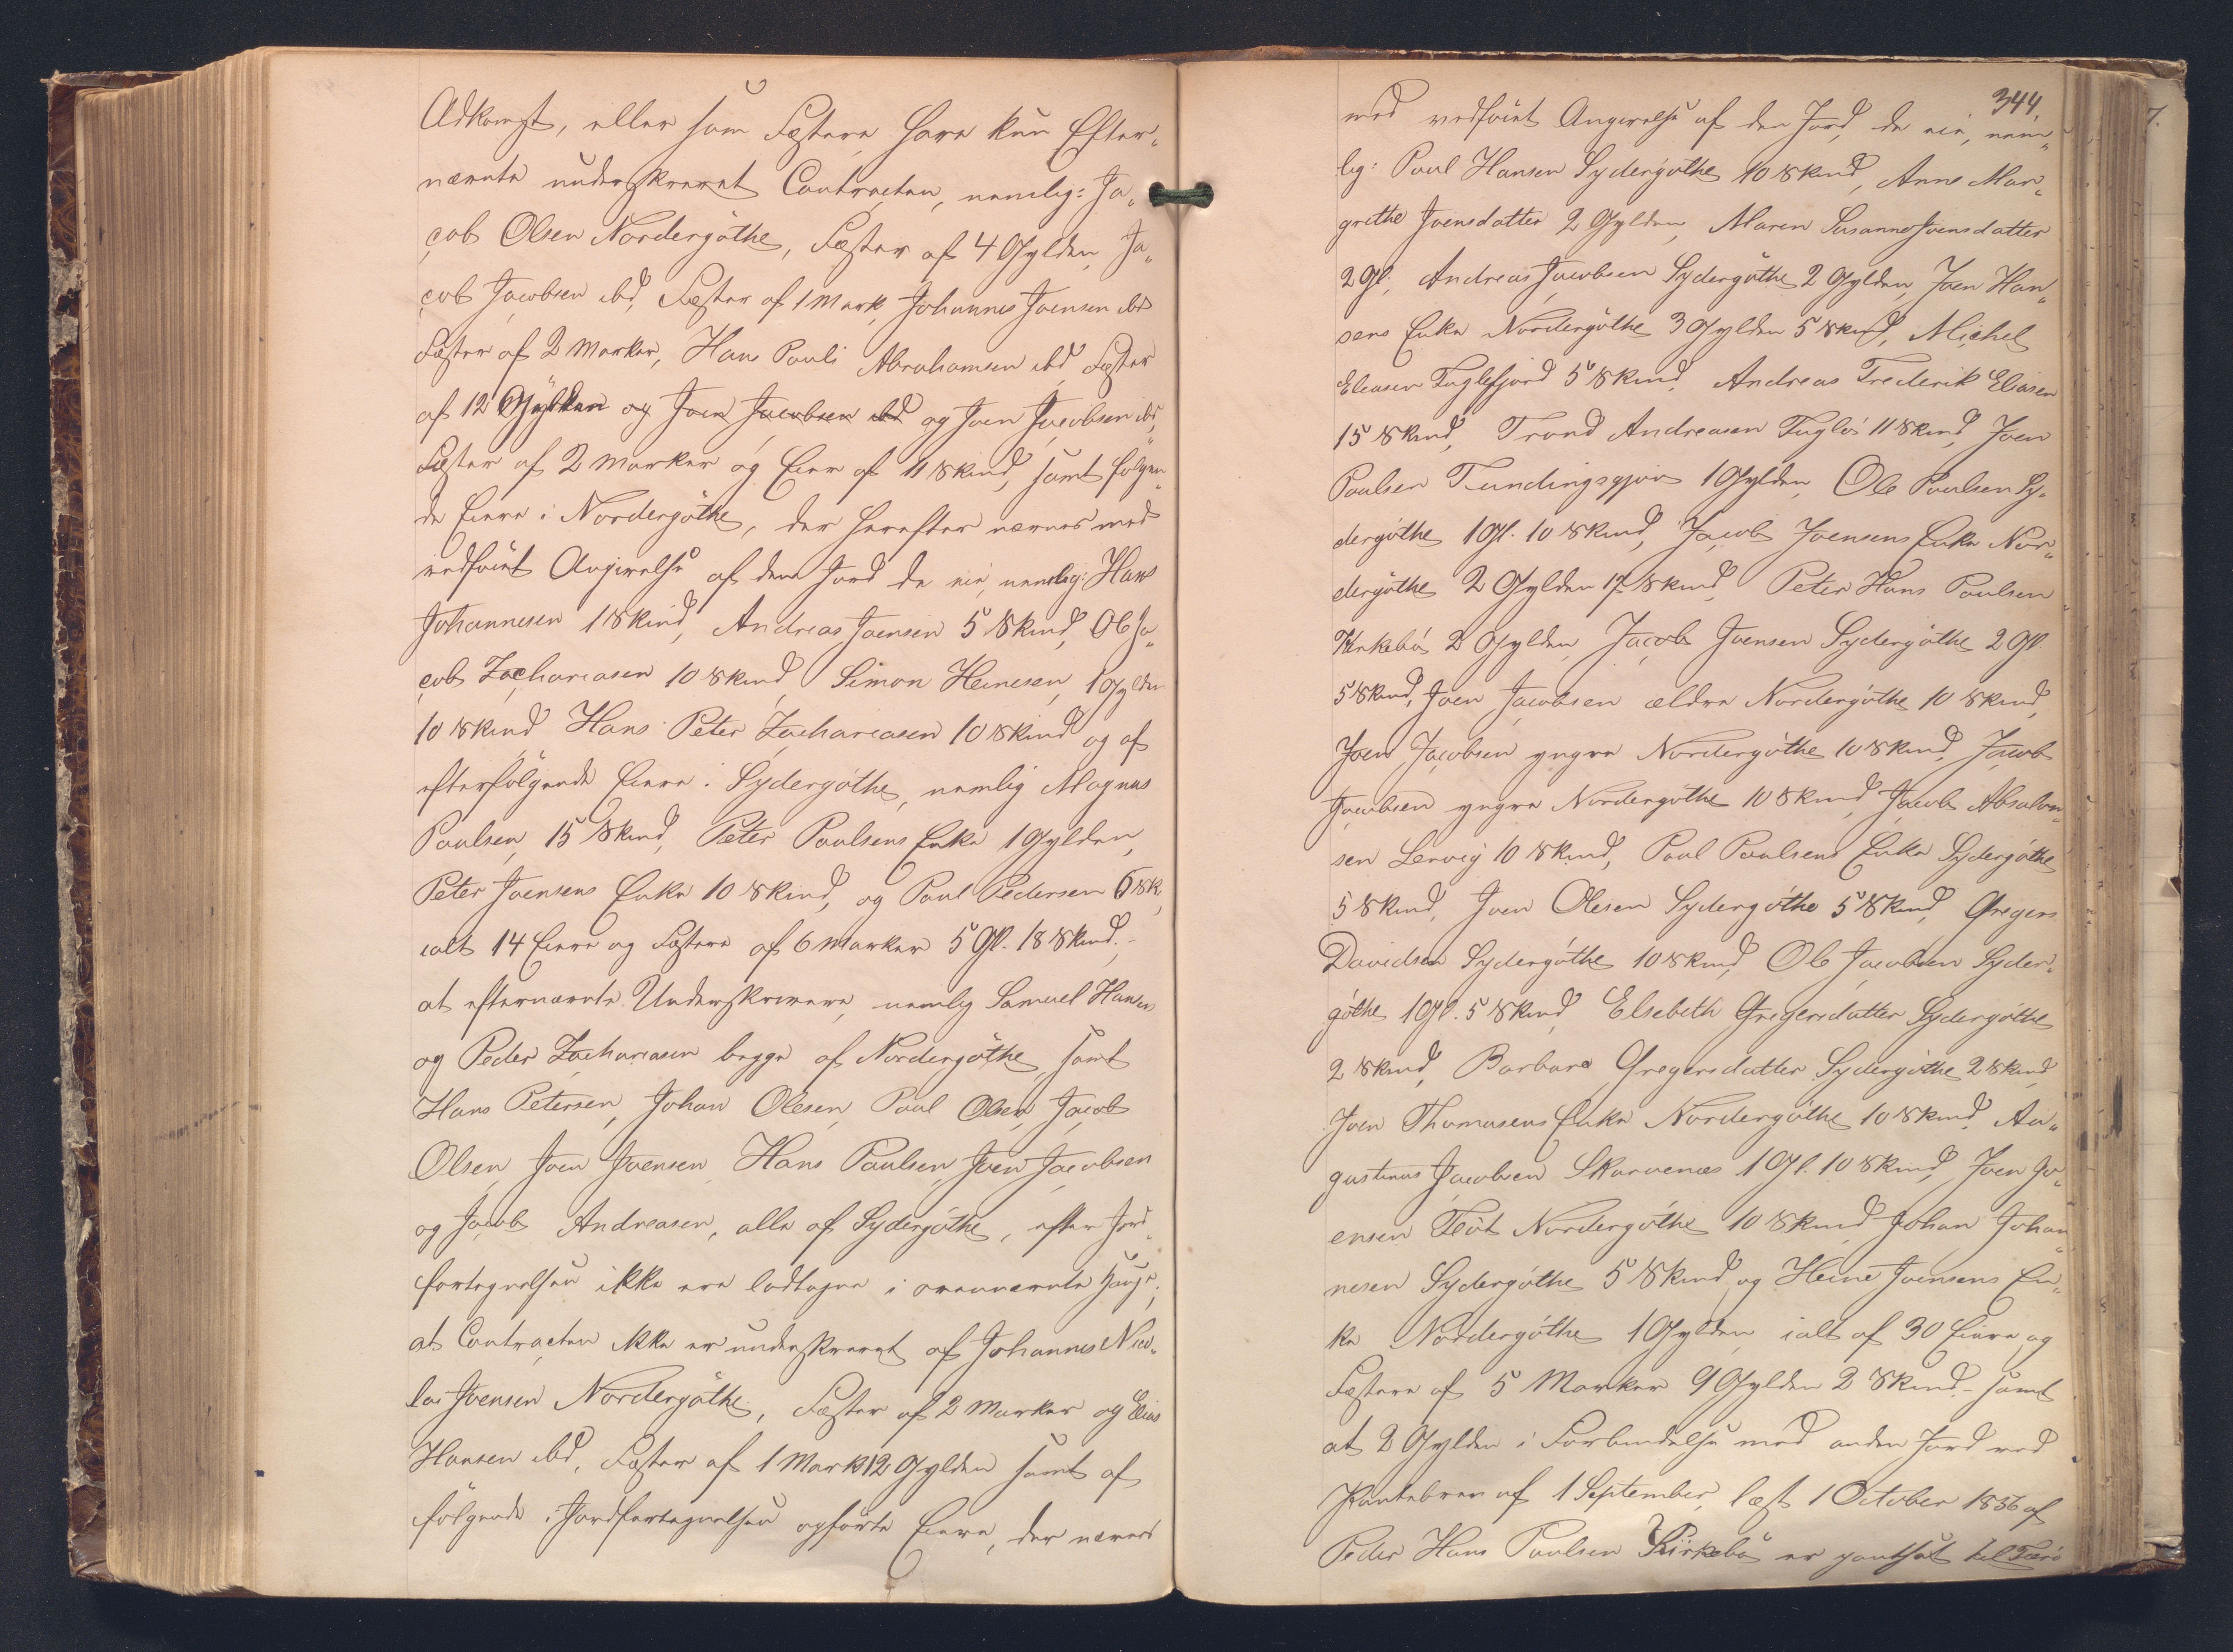 Adkomst, eller som Fæstere have kun Efter„
nævnte underskrevet Contracten, nemlig: Ja„
cob Olsen Nordergöthe, Fæster af 4 Gylden, Ja„
cob Jacobsen ibd, Fæster af 1 Mark, Johannes Joensen ibd
Fæster af 2 Marker, Hans Pauli Abrahamsen ibd Fæster
af 12 Gylden og Joen Jacobsen ibd og Joen Jacobsen ibd,
Fæster af 2 Marker og Eier af 11 Skind, samt følgen„
de Eiere i Nordergöthe, der herefter nævnes med
vedføiet Angivelse af den Jord de eie, nemlig: Hans
Johannesen 1 Skind, Andreas Joensen 5 Skind, Ole Ja„
cob Zachariasen 10 Skind, Simon Heinesen, 1 Gylden
10 Skind Hans Peter Zachariasen 10 Skind og af
efterfølgende Eiere i Sydergöthe, nemlig Magnus
Poulsen 15 Skind, Peter Poulsens Enke 1 Gylden,
Peter Joensens Enke 10 Skind, og Poul Pedersen 5 Sk,
ialt 14 Eiere og Fæstere af 6 Marker 5 Gl. 18 Skind.-
at efternævnte Underskrivere, nemlig Samuel Hansen
og Peder Zachariasen begge af Nordergöthe, samt
Hans Petersen, Johan Olesen, Poul Olsen, Jacob
Olsen, Joen Joensen, Hans Paulsen, Joen Jacobsen
og Jacob Andreasen, alle af Sydergöthe, efter Jord„
fortegnelsen ikke ere lodtagne i ovennævnte Hauge;
at Contracten ikke er underskrevet af Johannes Nico„
lai Joensen Nordergöthe, Fæster af 2 Marker og Elias
Hansen ibd, Fæster af 1 Mark 12 Gylden samt af
følgende i Jordfortegnelsen opførte Eiere, der nævnes
344,
med vedføiet Angivelse af den Jord, de eie, nem„
lig: Poul Hansen Sydergöthe 10 Skind, Anne Mar„
grethe Joensdatter 2 Gylden, Maren Susanne Joensdatter
2 Gl, Andreas Jacobsen Sydergöthe 2 Gylden, Joen Han„
sens Enke Nordergöthe 3 Gylden 5 Skind, Michel
Eleasen Fuglefjord 5 Skind, Andreas Frederik Eliasen
15 Skind, Trond Andreasen Fuglö 11 Skind, Joen
Poulsen Fundingsgjov 1 Gylden, Ole Poulsen Sy„
dergöthe 1 Gl. 10 Skind, Jacob Joensens Enke Nor„
dergöthe 2 Gylden 17 Skind, Peter Hans Poulsen
Kirkebö 2 Gylden, Jacob Joensen Sydergöthe 2 Gl.
5 Skind, Joen Jacobsen ældre Nordergöthe 10 Skind,
Joen Jacobsen yngre Nordergöthe 10 Skind, Jacob
Jacobsen yngre Nordergöthe 10 Skind, Jacob Absalon„
sen Lervig 10 Skind, Poul Poulsens Enke Sydergöthe
5 Skind, Joen Olesen Sydergöthe 5 Skind, Gregers
Davidsen Sydergöthe 10 Skind, Ole Jacobsen Syder„
göthe 1 Gl. 5 Skind, Elsebeth Gregersdatter Sydergöthe
2 Skind, Barbara Gregersdatter Sydergöthe 2 Skind,
Joen Thomasens Enke Nordergöthe 10 Skind, Au„
gustinus Jacobsen Skarvenæs 1 Gl. 10 Skind, Joen Jo„
ensen Flöt Nordergöthe 10 Skind Johan Johan„
nesen Sydergöthe 5 Skind og Heine Joensens En„
ke Nordergöthe 1 Gylden, ialt af 30 Eiere og
Fæstere af 5 Marker 9 Gylden 2 Skind - samt
at 2 Gylden i Forbindelse med anden Jord ved
Pantebrev af 1 September, læst 1 October 1856 af
Peder Hans Poulsen Kirkebö er pantsat til Færö